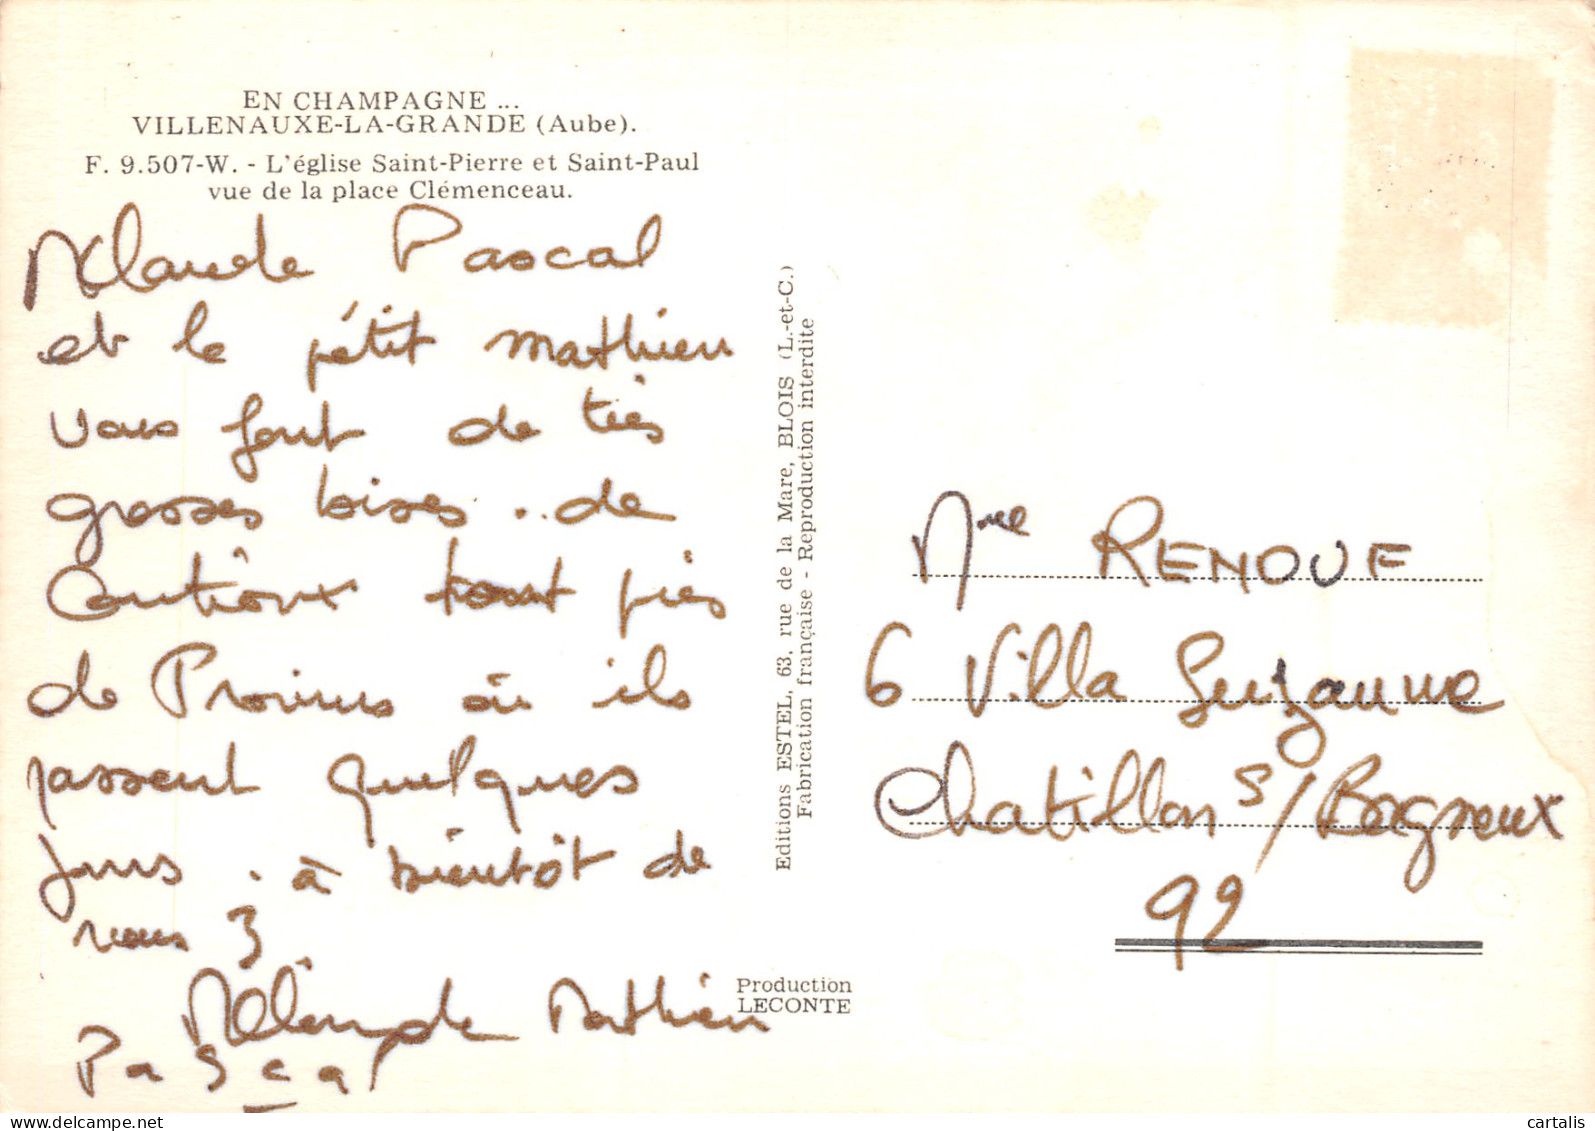 EN CHAMPAGNE ...
VILLENAUXE-LA-GRANDE (Aube).
F. 9.507-W. - L'église Saint-Pierre et Saint-Paul
vue de la place Clémenceau.
Pascal
et le pétit mathieu
vous font de très
grosses bises .. de
près
de Provins où ils
passent quelques
jours . à bientôt de
nous 3
Mathieu
Pascal
Editions ESTEL, 63, rue de la Mare, BLOIS (L.-et-C.)
Fabrication française - Reproduction interdite
Production
LECONTE
Mme RENOUF
6 Villa Suzanne
Chatillon s/ Bagneux
92
cartalis
www.delcampe.net